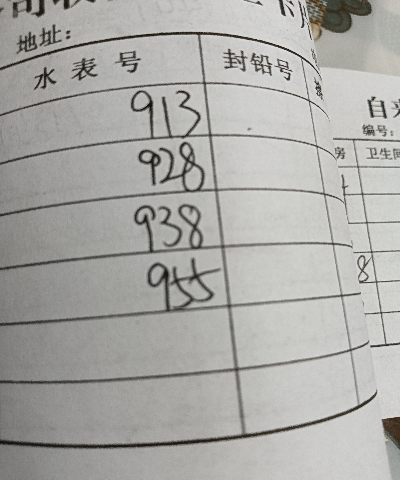 地址:
水表号 封铅号
913
928
938
955
自来
编号:
房 卫生间
8